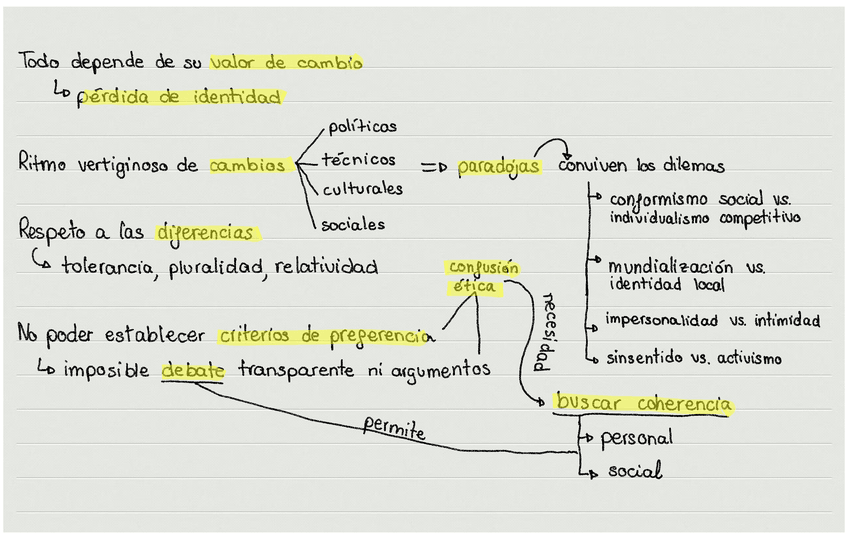 Todo depende de su valor de cambio
↳ pérdida de identidad
políticos
Ritmo vertiginoso de cambios
técnicos
culturales
sociales
⇒ paradojas
conviven los dilemas
conformismo social vs.
individualismo competitivo
mundialización vs.
identidad local
impersonalidad vs. intimidad
sinsentido vs. activismo
Respeto a las diferencias
↳ tolerancia, pluralidad, relatividad
confusión
ética
No poder establecer criterios de preferencia
↳ imposible debate transparente ni argumentos
necesidad
buscar coherencia
permite
personal
social